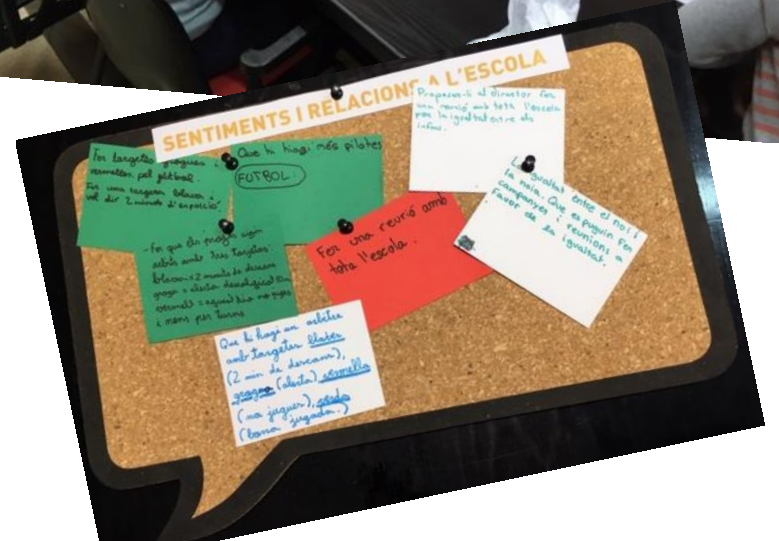 SENTIMENTS I RELACIONS A L'ESCOLA
Fer targetes grogues i
vermelles pel futbol.
Fer una targeta blava i
vol dir 2 minuts d'expulsió
Que hi hagi més pilotes
FUTBOL:
Proposar-li al director fer
una reunió amb tota l'escola
per la igualtat entre els
infants.
La igualtat entre el noi i
la noia. Que es puguin fer
campanyes i reunions a
favor de la igualtat.
- Fer que els
arbits amb tres targetes:
blava = 2 minuts de descans
groga =
vermell = aquell dia no jugues
i nens per turns
Fer una reunió amb
tota l'escola.
Que hi hagi un arbitre
amb targetes blaves
(2 min de descans),
grogues (alerta) vermella
(no jugues), verda
(bona jugada.)